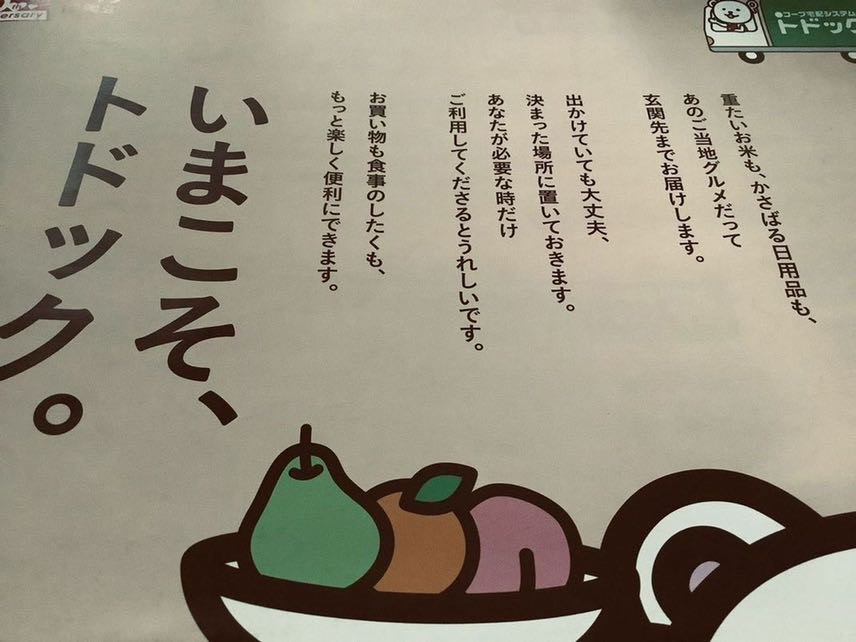 ersary
コープ宅配システム
トドック
重たいお米も、かさばる日用品も、
あのご当地グルメだって
玄関先までお届けします。
出かけていても大丈夫、
決まった場所に置いておきます。
あなたが必要な時だけ
ご利用してくださるとうれしいです。
お買い物も食事のしたくも、
もっと楽しく便利にできます。
いまこそ、
トドック。